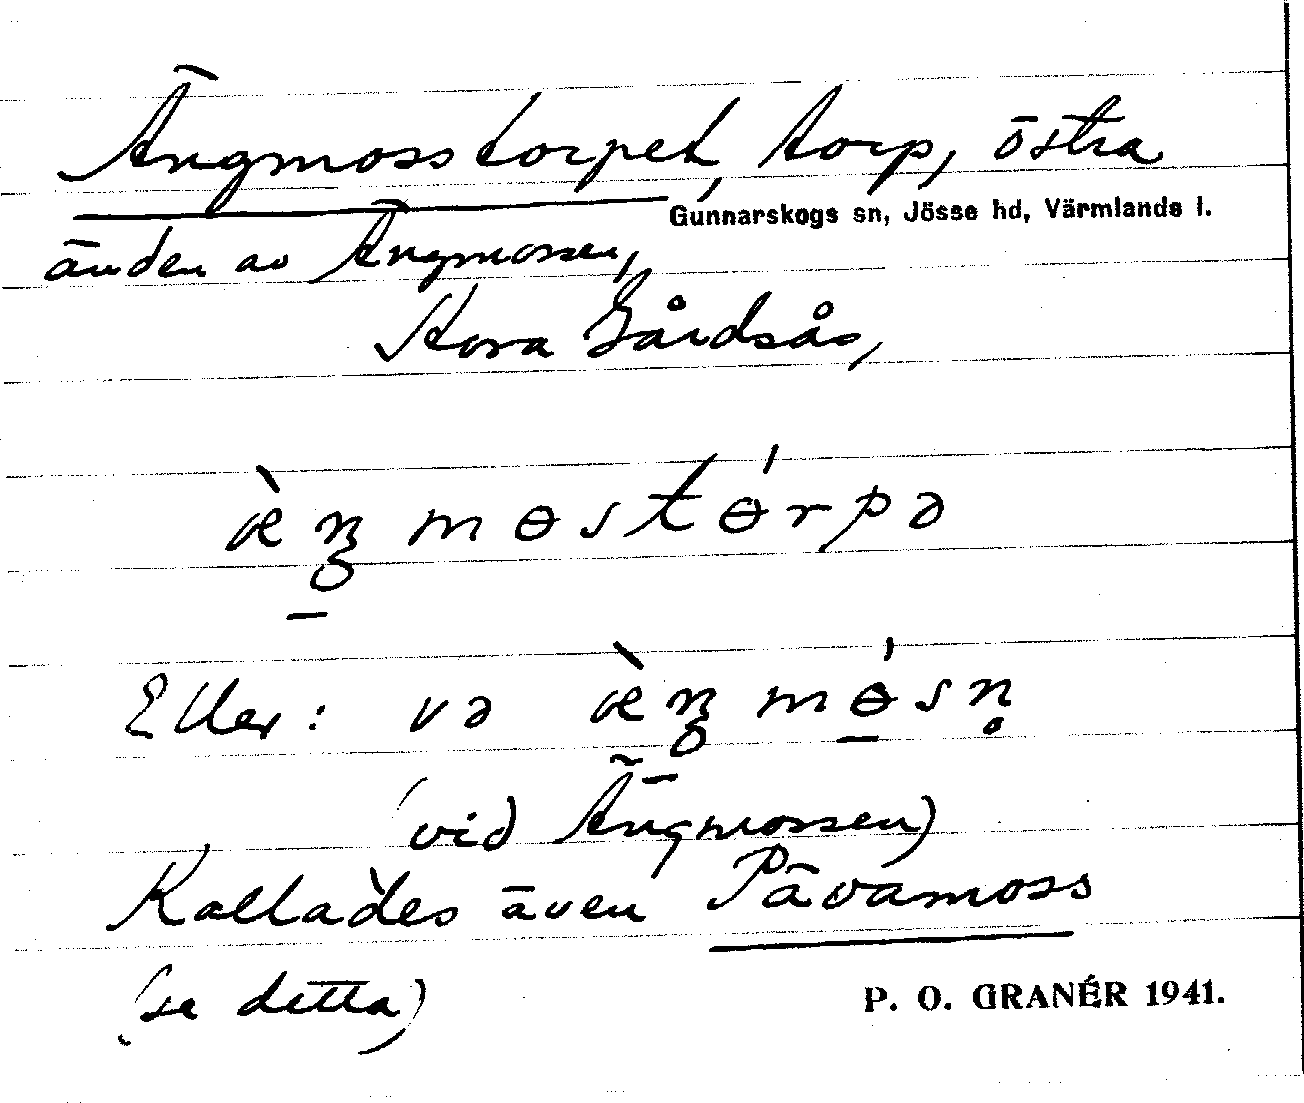 Ängmosstorpet, torp, östra
Gunnarskogs sn, Jösse hd, Värmlands l.
änden av Ängmossen,
Stora Gårdsås,
æ̀ŋmɵstɵ́rpə
Eller: və æ̀ŋmɵ́sn̥
(vid Ängmossen)
Kallades även Påvamoss
(se detta)
P. O. GRANÉR 1941.